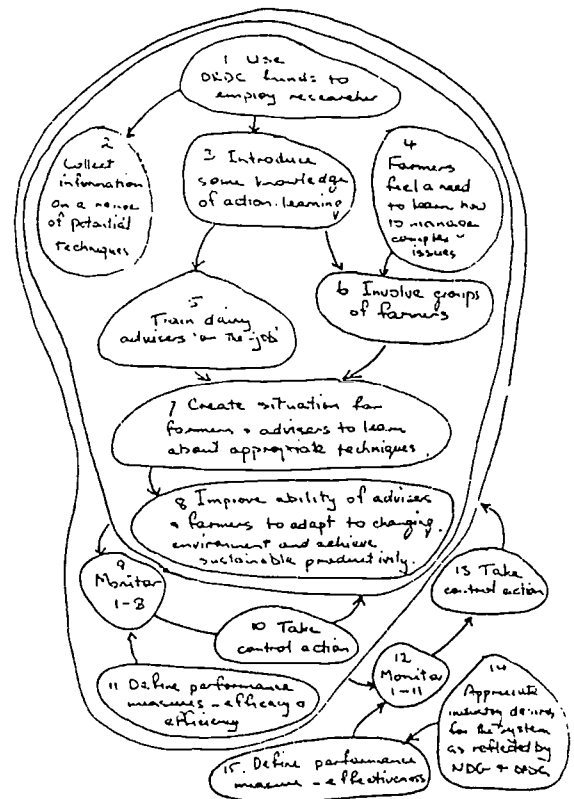 1 Use
DRDC funds to
employ researcher
2
Collect
information
on a range
of potential
techniques
3 Introduce
some knowledge
of action learning
4
Farmers
feel a need
to learn how
to manage
complex
issues
5
Train dairy
advisers 'on-the-job'
6 Involve groups
of farmers
7 Create situation for
farmers & advisers to learn
about appropriate techniques.
8 Improve ability of advisers
& farmers to adapt to changing
environment and achieve
sustainable productivity.
9
Monitor
1-8
10 Take
control action
11 Define performance
measures - efficacy &
efficiency
12
Monitor
1-11
13 Take
control action
14
Appreciate
industry desires
for the system
as reflected by
NDG &
15. Define performance
measure - effectiveness